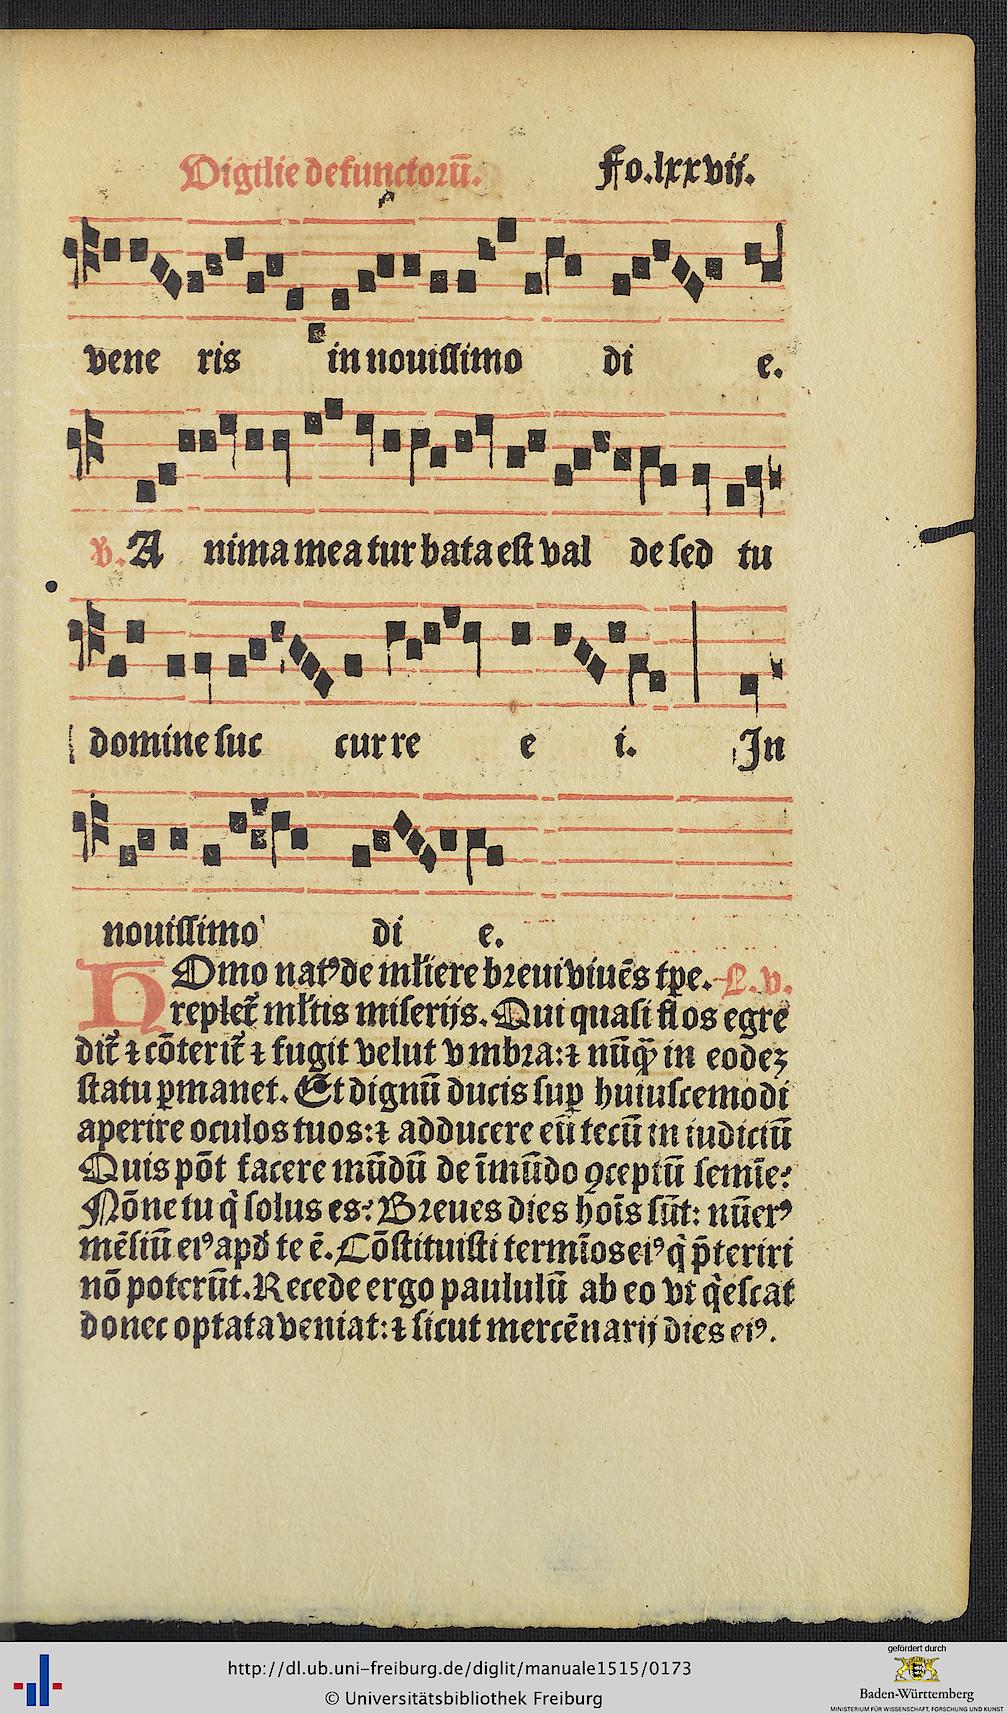 Vigilie defunctorū.
Fo.lxxvij.
vene ris in nouissimo di e.
V. A nima mea tur bata est val de sed tu
domine suc cur re e i. In
nouissimo di e.
HOmo natꝰ de ml̄iere breui viuēs tp̄e. L. v.
replet̄ ml̄tis miserijs. Qui quasi flos egre
dit̄ ⁊ cōterit̄ ⁊ fugit velut vmbra:⁊ nūq̄ in eodeꝫ
statu ꝑmanet. Et dignū ducis suꝑ huiuscemodi
aperire oculos tuos:⁊ adducere eū tecū in iudiciū
Quis pōt facere mūdū de īmūdo ꝯceptū semīe?
Nōne tu q̇ solus es? Breues dies hoīs sūt: nūerꝰ
mēsiū eiꝰ apđ te ē. Cōstituisti termīos eiꝰ q̇ p̄teriri
nō poterūt. Recede ergo paululū ab eo vt q̇escat
donec optata veniat:⁊ sicut mercēnarij dies eiꝰ.
http://dl.ub.uni-freiburg.de/diglit/manuale1515/0173
© Universitätsbibliothek Freiburg
gefördert durch
Baden-Württemberg
MINISTERIUM FÜR WISSENSCHAFT, FORSCHUNG UND KUNST